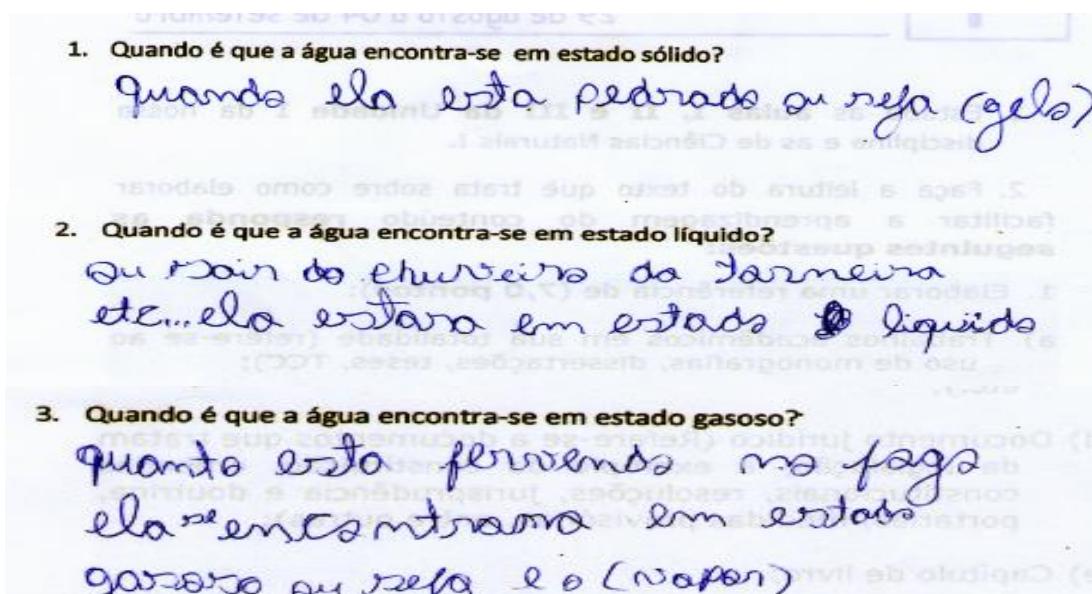 1. Quando é que a água encontra-se em estado sólido?
quando ela esta pedrada ou seja (gelo)
2. Quando é que a água encontra-se em estado líquido?
ou sair do chuveiro da tarneira
etc...ela estara em estado liquido
3. Quando é que a água encontra-se em estado gasoso?
quanto esta fervendo no fogo
ela se encontrara em estado
gasoso ou seja e o (vapor)